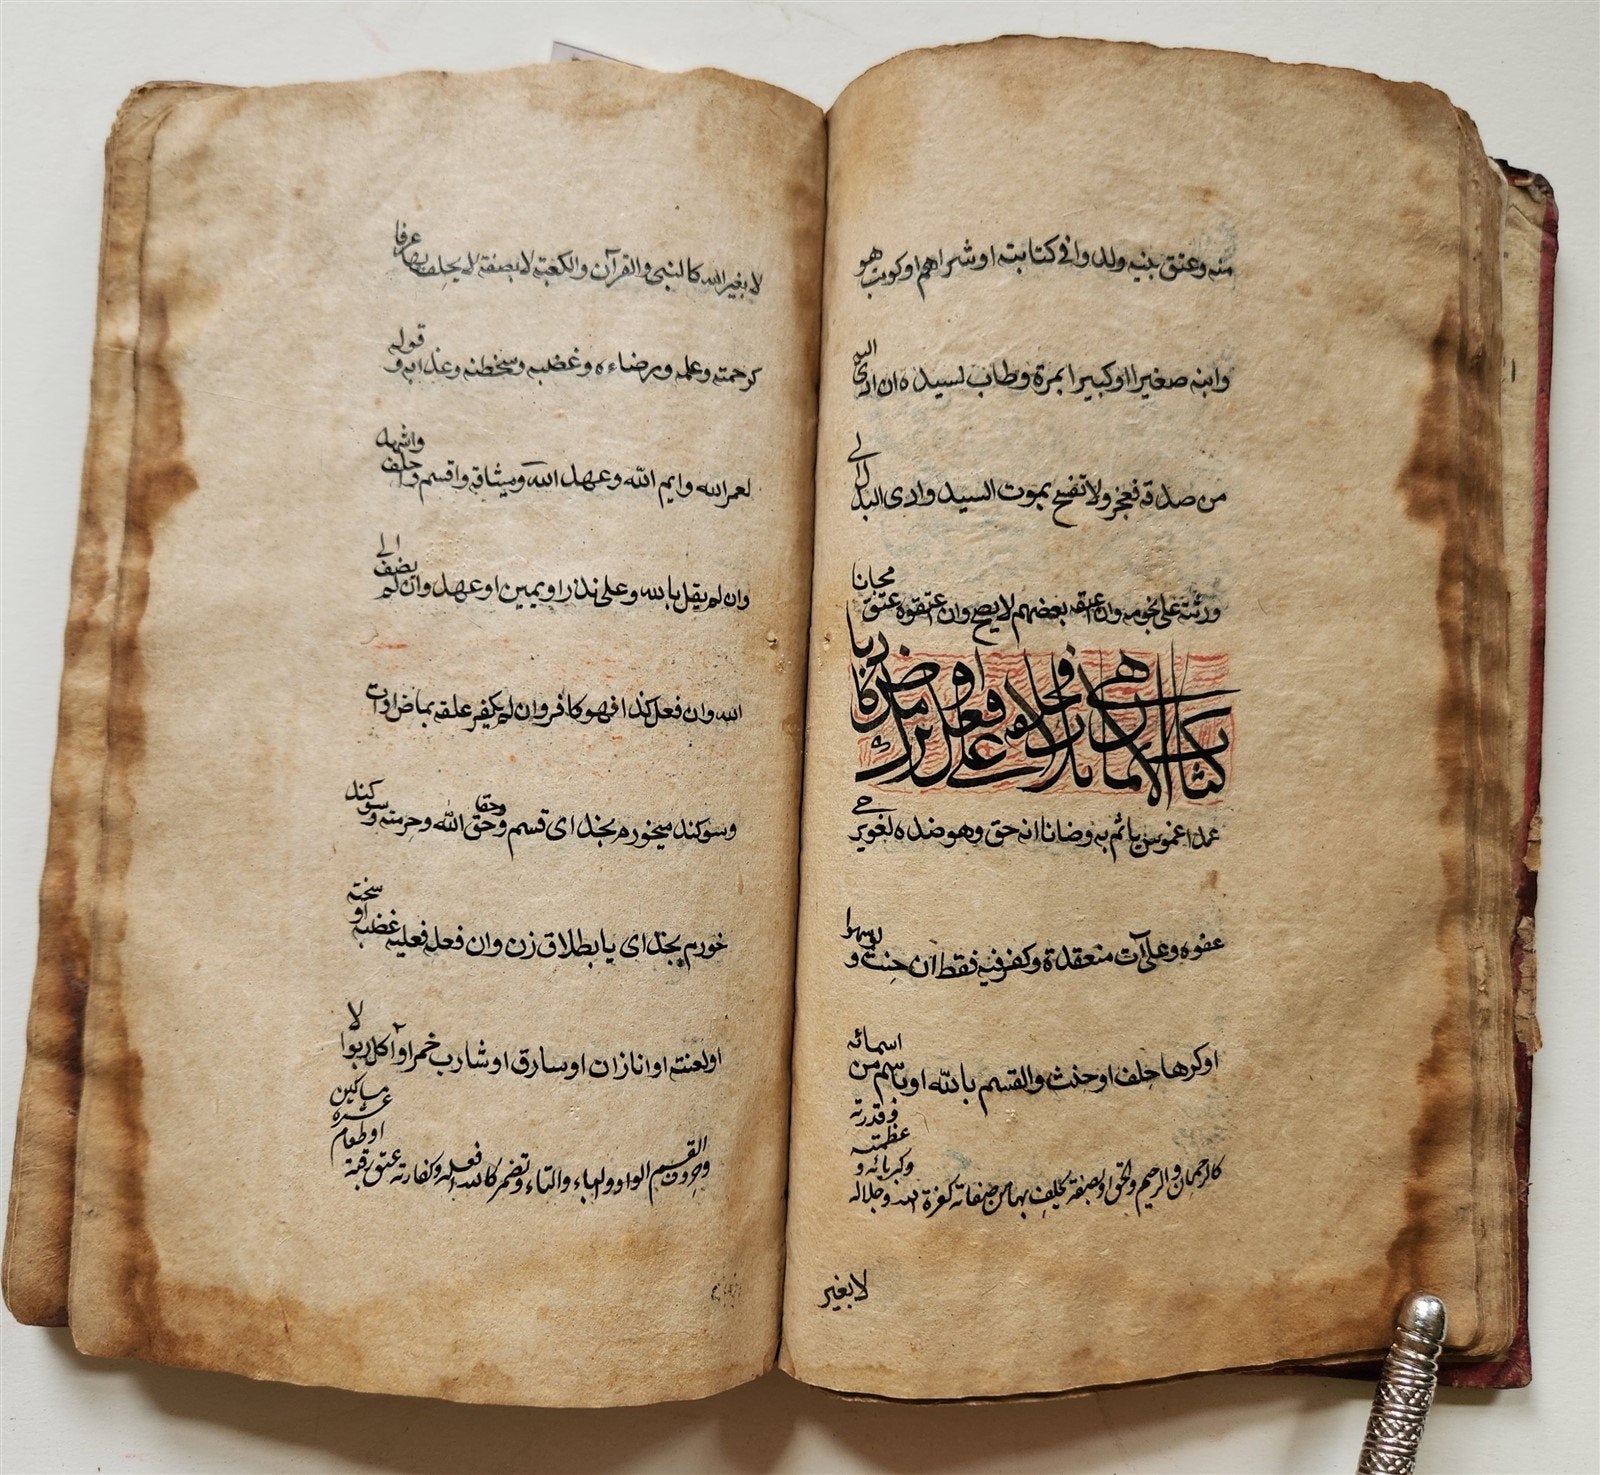 منه وعتق بنيه ولدوا في كتابته او شراهم او كوتب هو
وابنه صغيرا او كبيرا بمرة وطاب لسيده ان ادى اليه
من صدقة فعجز ولا تفسخ بموت السيد وادى البدل الى
ورثته على نجومه وان اعتقه بعضهم لا يصح وان اعتقوه عتق مجانا
كتاب الايمان هي
فحلفه على فعل او
عمدا غموس ياثم به وضانا انه حق وهو ضده لغو يرجى
عفوه وعلى آت منعقدة وكفر فيه فقط ان حنث ولو سهوا
او كرها حلف او حنث والقسم بالله او باسم من اسمائه
كالرحمان والرحيم والحق او بصفة يحلف بها من صفاته كعزة الله وجلاله وكبريائه وعظمته وقدرته
لا بغير
لا بغير الله كالنبي والقرآن والكعبة لا بصفة لا يحلف بها عرفا
كرحمته وعلمه ورضاءه وغضبه وسخطه وعذابه وقوله
لعمر الله وايم الله وعهد الله وميثاقه واقسم واحلف واشهد
وان لم يقل بالله وعلي نذر او يمين او عهد وان لم يضف الى
الله وان فعل كذا فهو كافر وان لم يكفر علقه بماض او آت
وسوكند ميخورم بخداى قسم وحقا وحق الله وحرمته وسوكند
خورم بخداى يا بطلاق زن وان فعل فعليه غضبه او سخته
او لعنته او انا زان او سارق او شارب خمر او آكل ربوا لا
وحروف القسم الواو والباء والتاء وتضمر كالله افعله وكفارته عتق رقبة او طعام عشرة مساكين